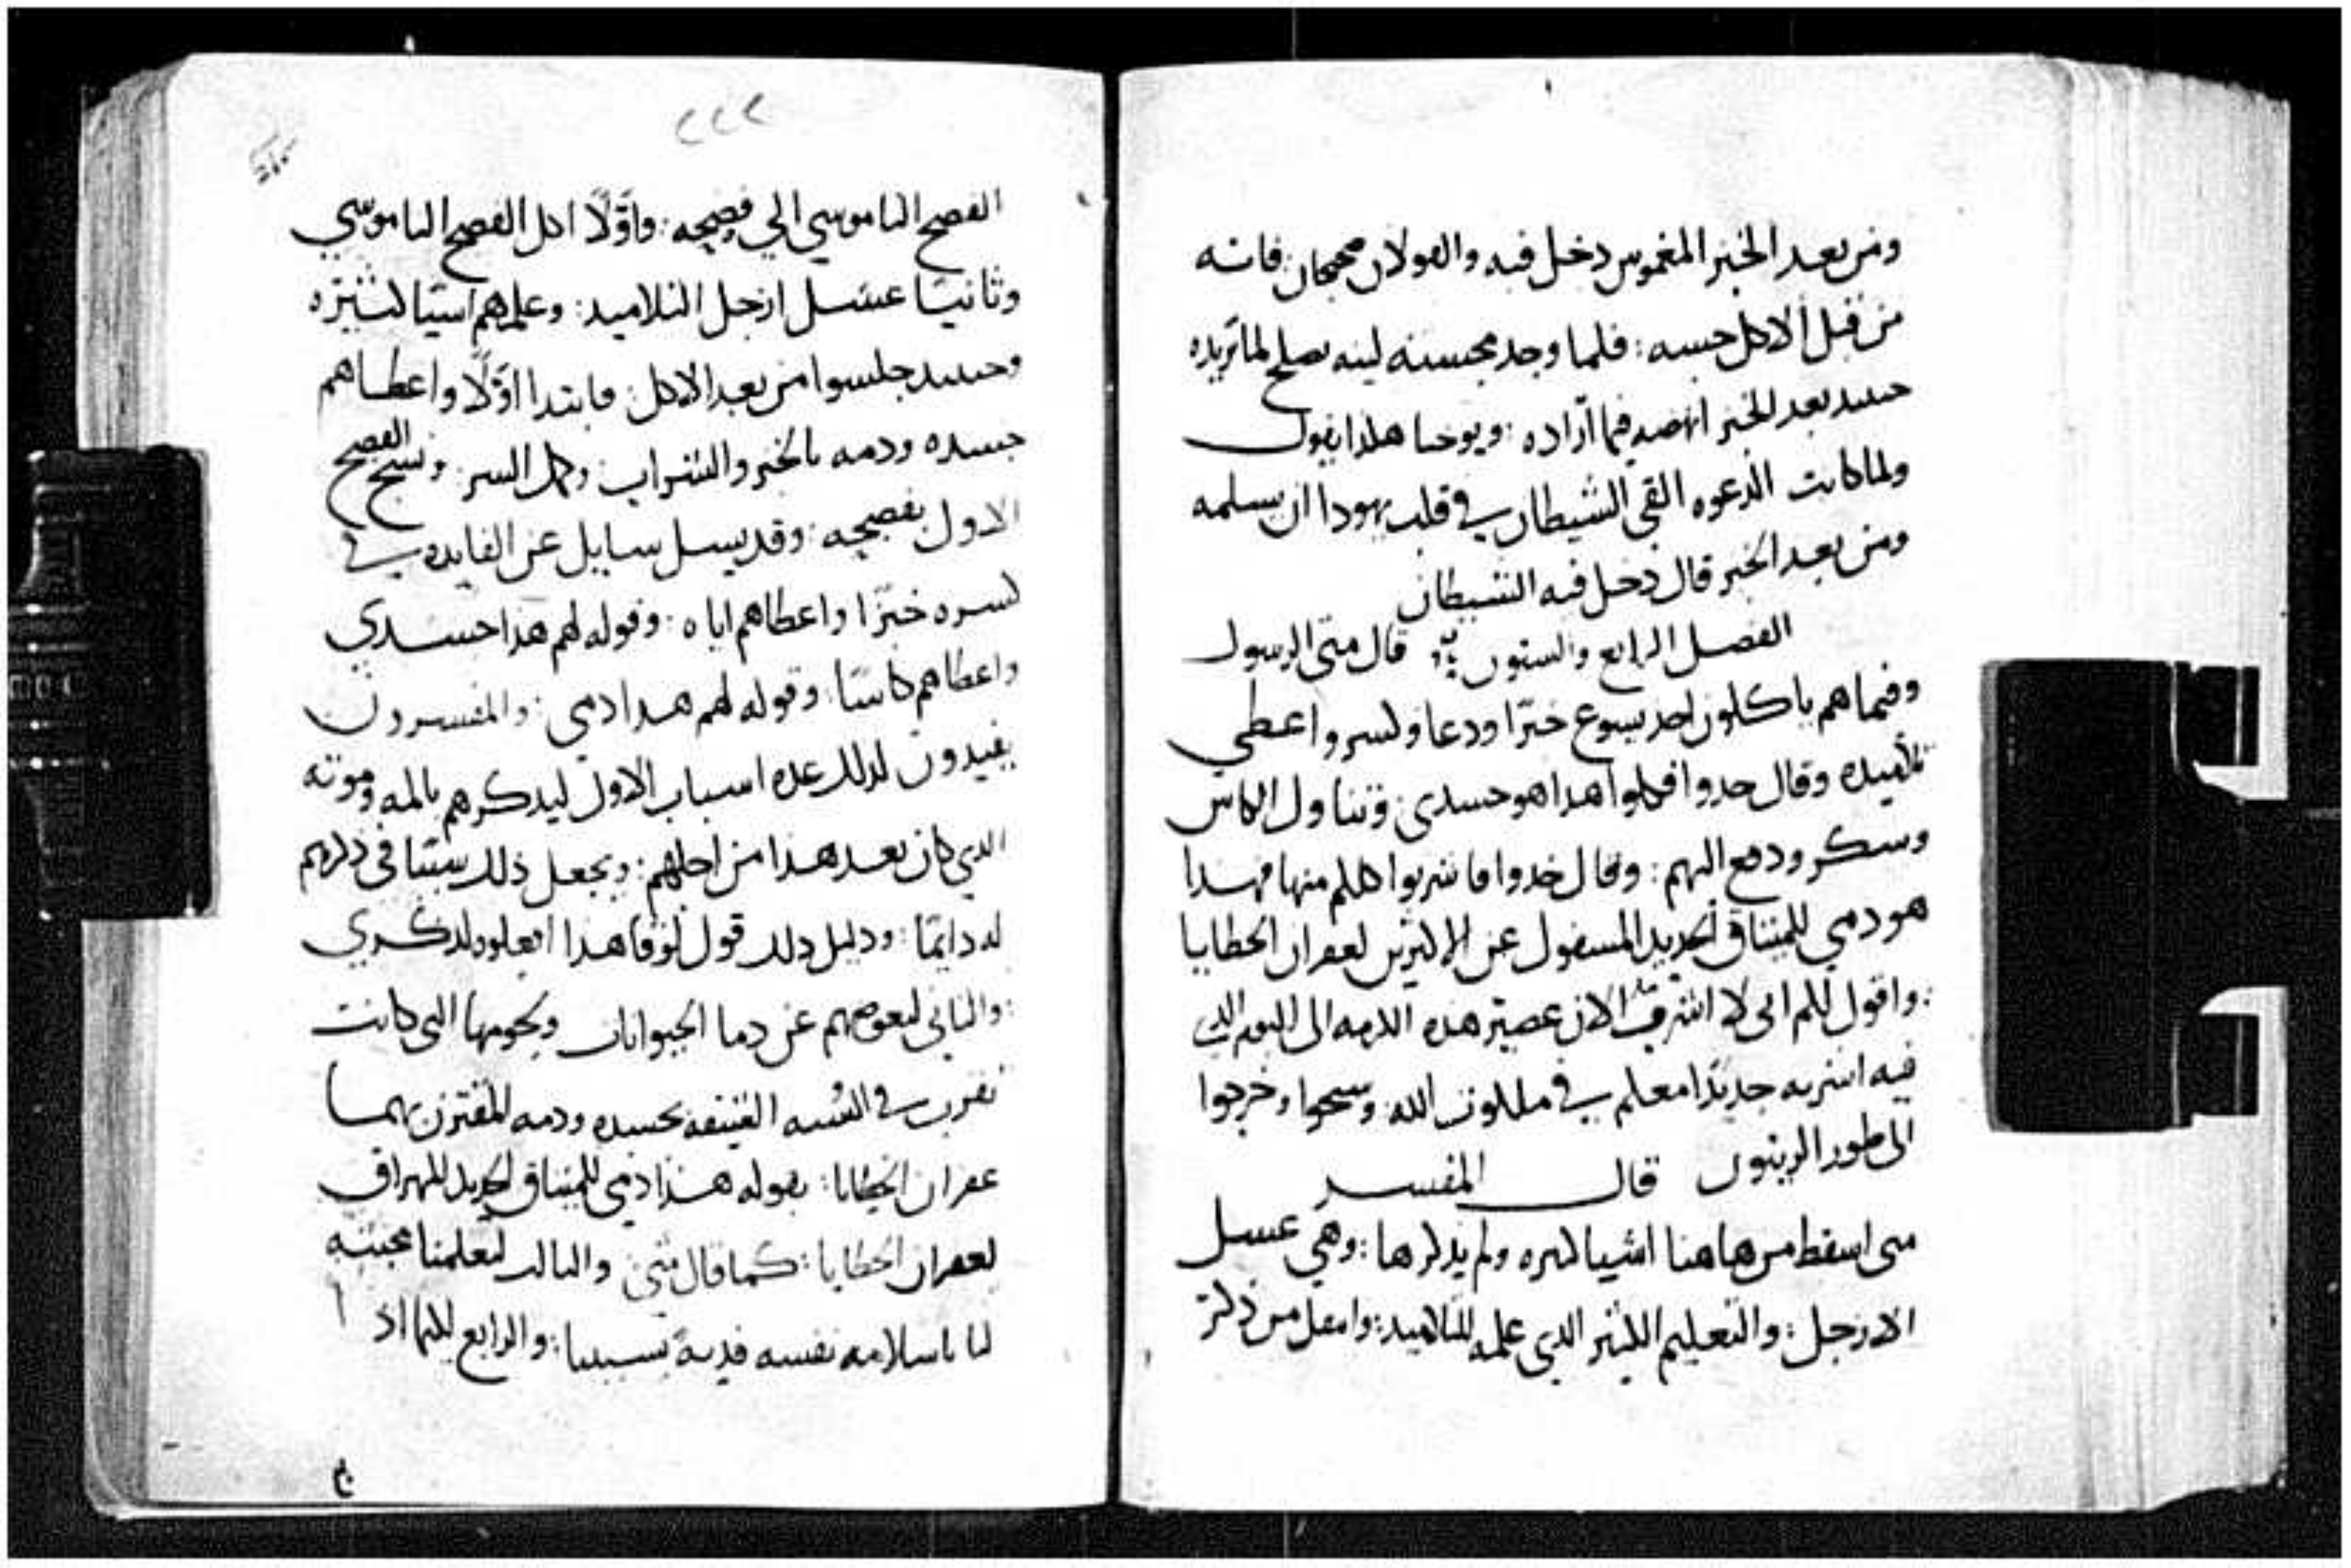 ومن بعد الخبز المغموس دخل فيه والقولان صحيحان فانه
من قبل الاكل حسه : فلما وجد محسنه لينه يصلح لما تريده
حينيد بعد الخبز انهضه فيما اراده : ويوحنا هكذا يقول
ولما كانت الدعوه القي الشيطان في قلب يهودا ان يسلمه
ومن بعد الخبز قال دخل فيه الشيطان
الفصل الرابع والستون : قال متى الرسول
وفيما هم ياكلون اخد يسوع خبزا ودعا وكسر واعطي
تلاميده وقال خدوا فكلوا هدا هو جسدي : وتناول الكاس
وشكر ودفع اليهم : وقال خدوا فاشربوا كلكم منها فهدا
هو دمي للميتاق الجديد المسفوك عن الاكثرين لغفران الخطايا
: واقول لكم اني لا اشرب الان عصير هده الكرمه الى اليوم الدي
فيه اشربه جديدا معكم في ملكوت الله : وسبحوا وخرجوا
الى طور الزيتون قال المفسر
متى اسقط من هاهنا اشيا كثيره ولم يذكرها : وهي غسل
الارجل : والتعليم الكثير الدي علمه للتلاميد : وانتقل من ذكر
٢٢٢
الفصح الناموسي الي فصحه : واولا اكل الفصح الناموسي
وثانيا غسل ارجل التلاميد : وعلمهم اشيا كثيره
وحينيد جلسوا من بعد الاكل : فابتدا اولا واعطاهم
جسده ودمه بالخبز والشراب : وكمل السر : ونسخ الفصح
الاول بفصحه : وقد يسل سايل عن الفايده في
كسره خبزا واعطاهم اياه : وقوله لهم هدا جسدي
واعطاهم كاسا : وقوله لهم هدا دمي : والمفسرون
يفيدون لدلك عده اسباب الاول ليدكرهم بالمه وموته
الدي كان بعد هدا من اجلهم : ويجعل ذلك سببا في ذكرهم
له دايما : ودليل دلك قول لوقا هدا افعلوه لدكري
: والتاني ليعوضهم عن دما الحيوانات ولحومها التي كانت
تقرب في السنه العتيقه بجسده ودمه المقترن بهما
غفران الخطايا : بقوله هذا دمي للميتاق الجديد المهراق
لغفران الخطايا : كما قال متى : والتالت ليعلمنا محبته
لنا باسلامه نفسه فدية بسببنا : والرابع لكيما اذا